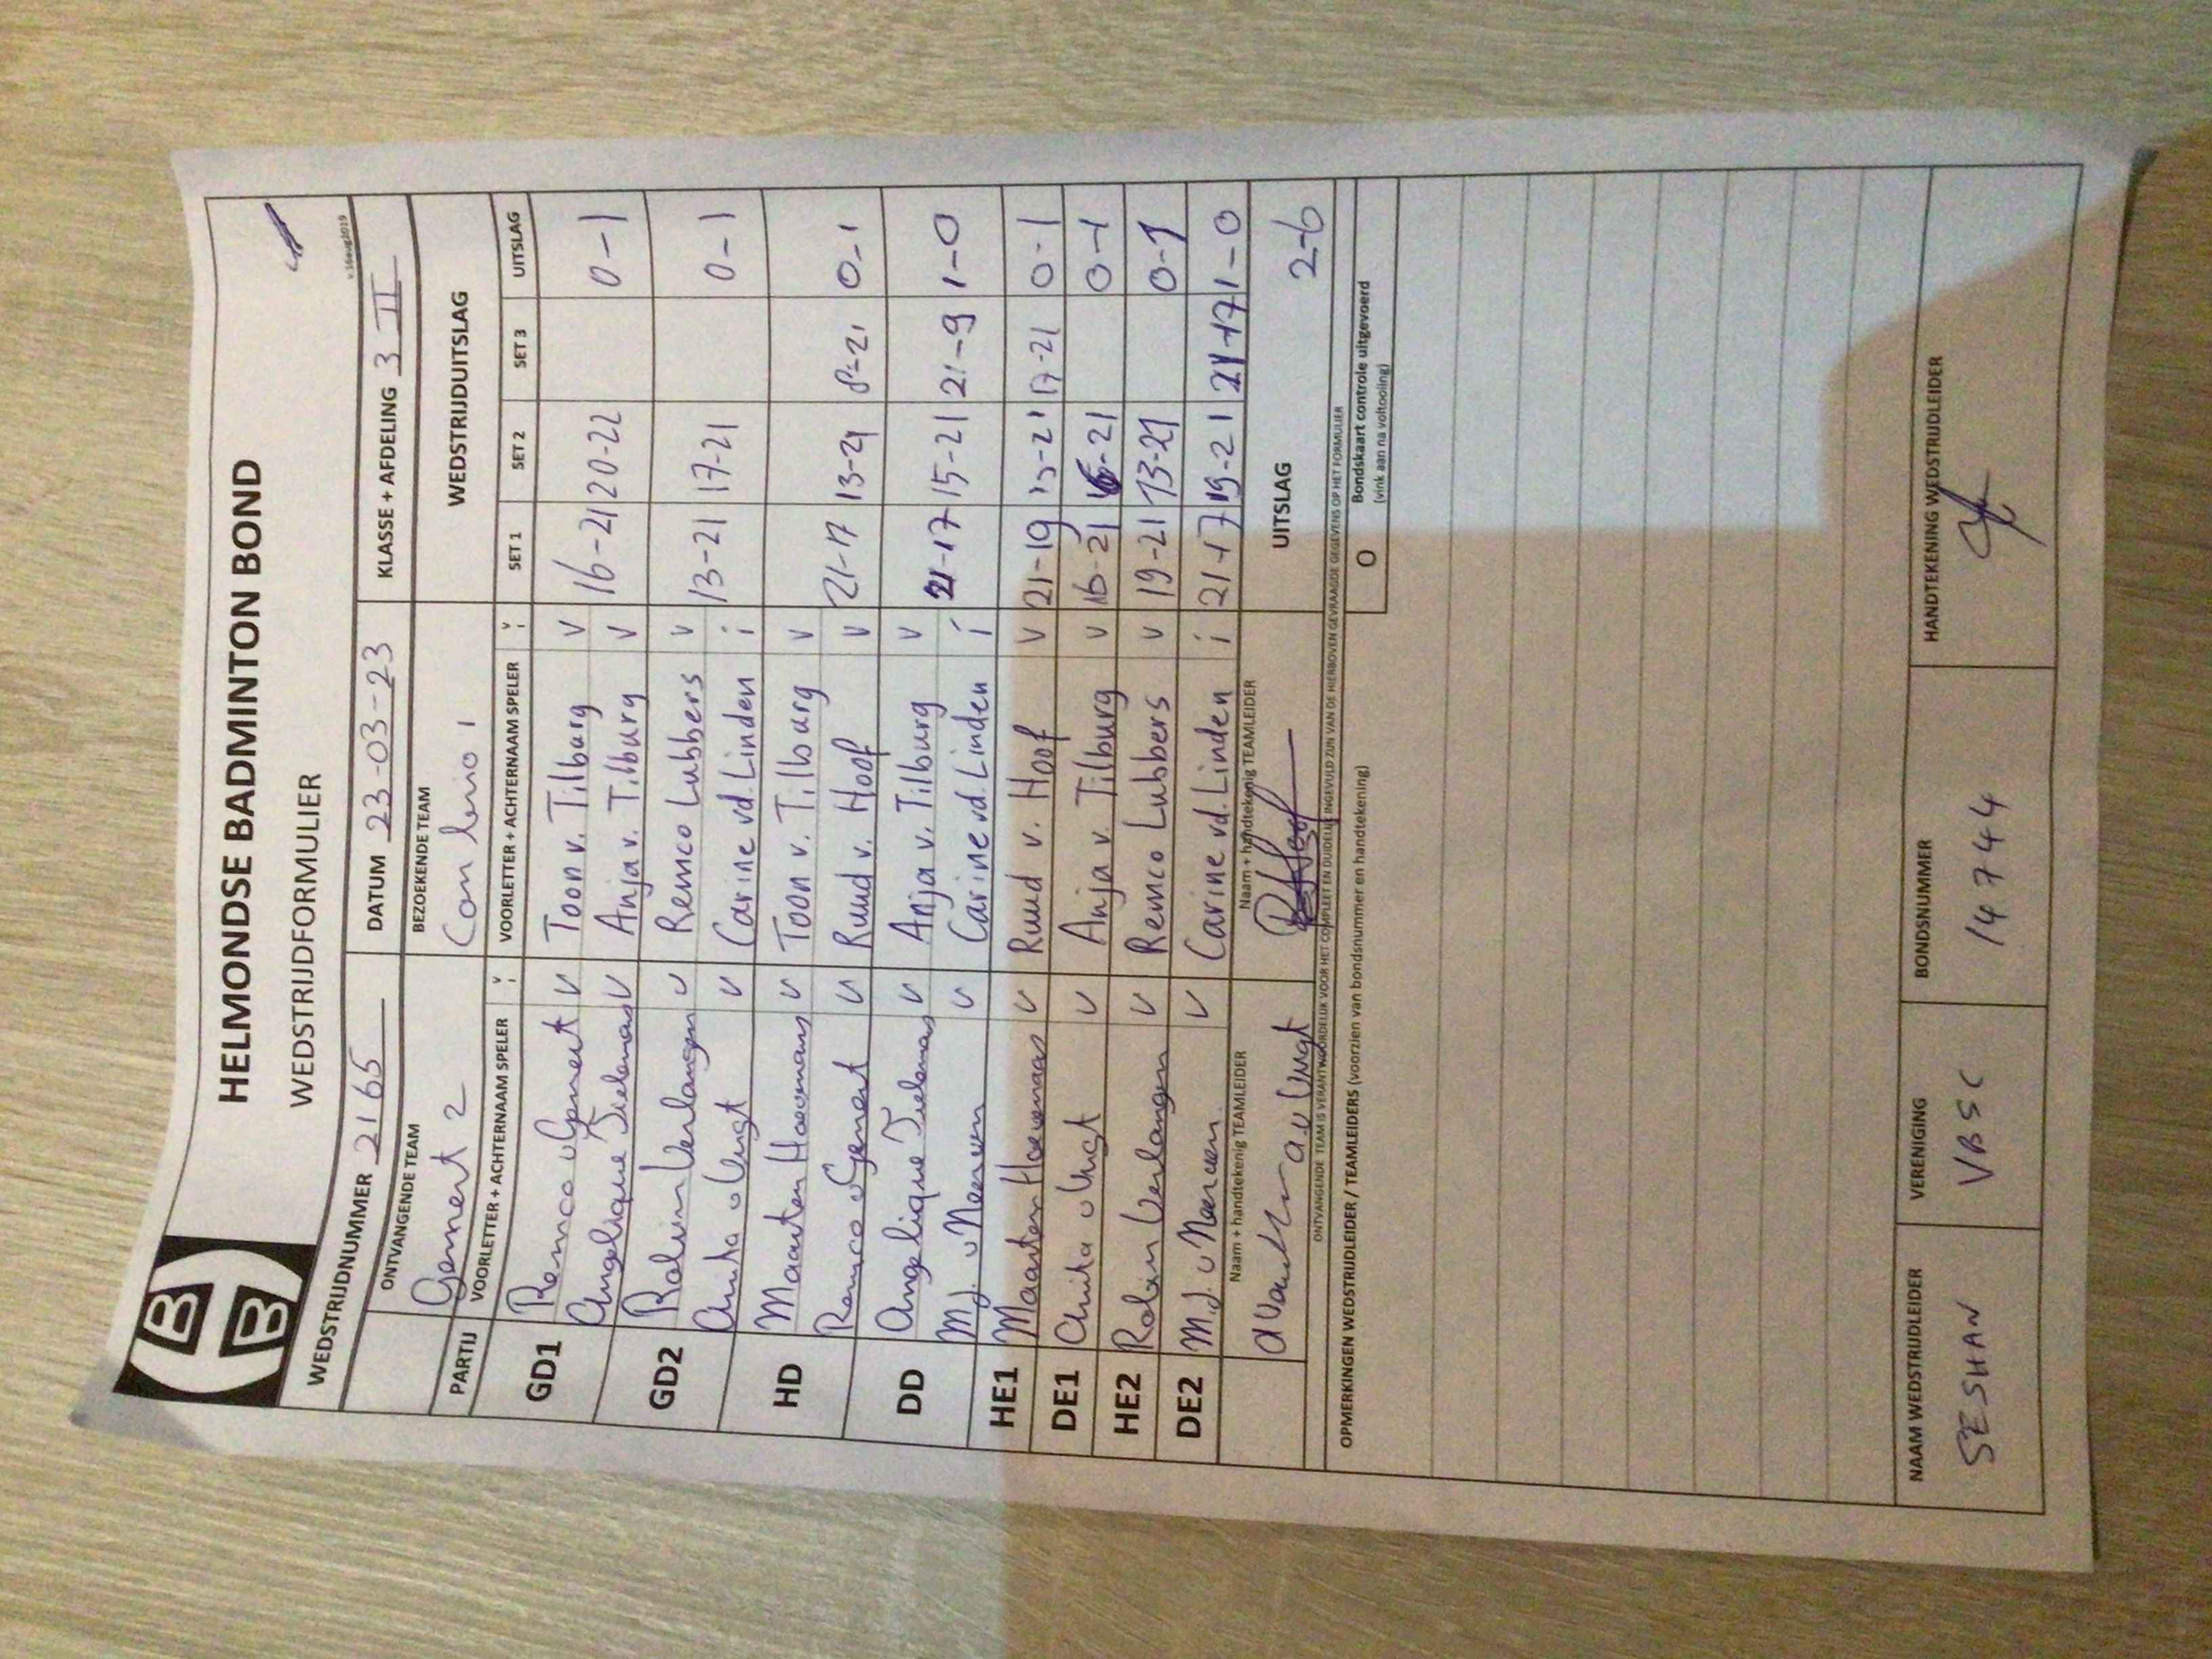 HELMONDSE BADMINTON BOND
WEDSTRIJDFORMULIER
v.16aug2019
WEDSTRIJDNUMMER 2165 DATUM 23-03-23 KLASSE + AFDELING 3 II
ONTVANGENDE TEAM BEZOEKENDE TEAM WEDSTRIJDUITSLAG
Gemert 2 Con brio 1
PARTIJ VOORLETTER + ACHTERNAAM SPELER V VOORLETTER + ACHTERNAAM SPELER V SET 1 SET 2 SET 3 UITSLAG
GD1 Remco v Gemert V Toon v. Tilburg V
Angelique Tielemans V Anja v. Tilburg V 16-21 20-22 0-1
GD2 Robin Verlangen V Remco Lubbers V
Anita v Vugt V Carine vd. Linden i 13-21 17-21 0-1
HD Maarten Hoevenaars V Toon v. Tilburg V
Remco v Gemert V Ruud v. Hoof V 21-17 13-21 8-21 0-1
DD Angelique Tielemans V Anja v. Tilburg V
M.J. v Meerven V Carine vd. Linden i 21-17 15-21 21-9 1-0
HE1 Maarten Hoevenaars V Ruud v. Hoof V 21-19 -21 17-21 0-1
DE1 Anita v Vugt V Anja v. Tilburg V 16-21 16-21 0-1
HE2 Robin Verlangen V Remco Lubbers V 19-21 13-21 0-1
DE2 M.J. v Meerven V Carine vd. Linden i 21-17 19-21 21-17 1-0
Naam + handtekenig TEAMLEIDER Naam + handtekenig TEAMLEIDER UITSLAG 2-6
a v Vugt
ONTVANGENDE TEAM IS VERANTWOORDELIJK VOOR HET COMPLEET EN DUIDELIJK INGEVULD ZIJN VAN DE HIERBOVEN GEVRAAGDE GEGEVENS OP HET FORMULIER
OPMERKINGEN WEDSTRIJDLEIDER / TEAMLEIDERS (voorzien van bondsnummer en handtekening) O Bondskaart controle uitgevoerd
(vink aan na voltooiing)
NAAM WEDSTRIJDLEIDER VERENIGING BONDSNUMMER HANDTEKENING WEDSTRIJDLEIDER
SESHAN VBSC 147444